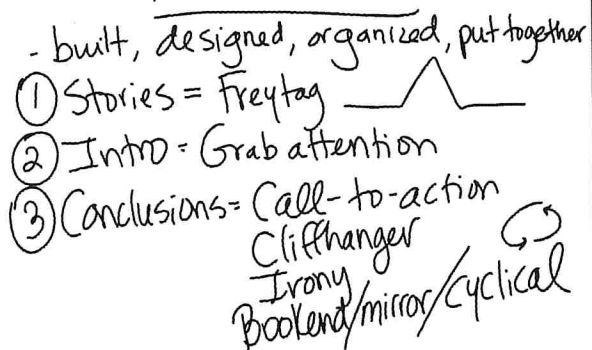 - built, designed, organized, put together
① Stories = Freytag
② Intro = Grab attention
③ Conclusions = Call-to-action
Cliffhanger
Irony
Bookend/mirror/cyclical